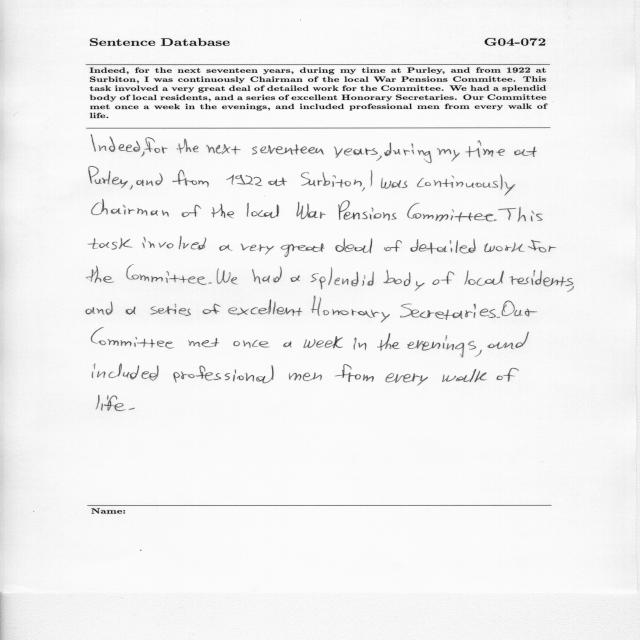 Sentence Database G04-072
Indeed, for the next seventeen years, during my time at Purley, and from 1922 at
Surbiton, I was continuously Chairman of the local War Pensions Committee. This
task involved a very great deal of detailed work for the Committee. We had a splendid
body of local residents, and a series of excellent Honorary Secretaries. Our Committee
met once a week in the evenings, and included professional men from every walk of
life.
Indeed, for the next seventeen years, during my time at
Purley, and from 1922 at Surbiton, I was continuously
Chairman of the local War Pensions Committee. This
task involved a very great deal of detailed work for
the Committee. We had a splendid body of local residents,
and a series of excellent Honorary Secretaries. Our
Committee met once a week in the evenings, and
included professional men from every walk of
life.
Name: